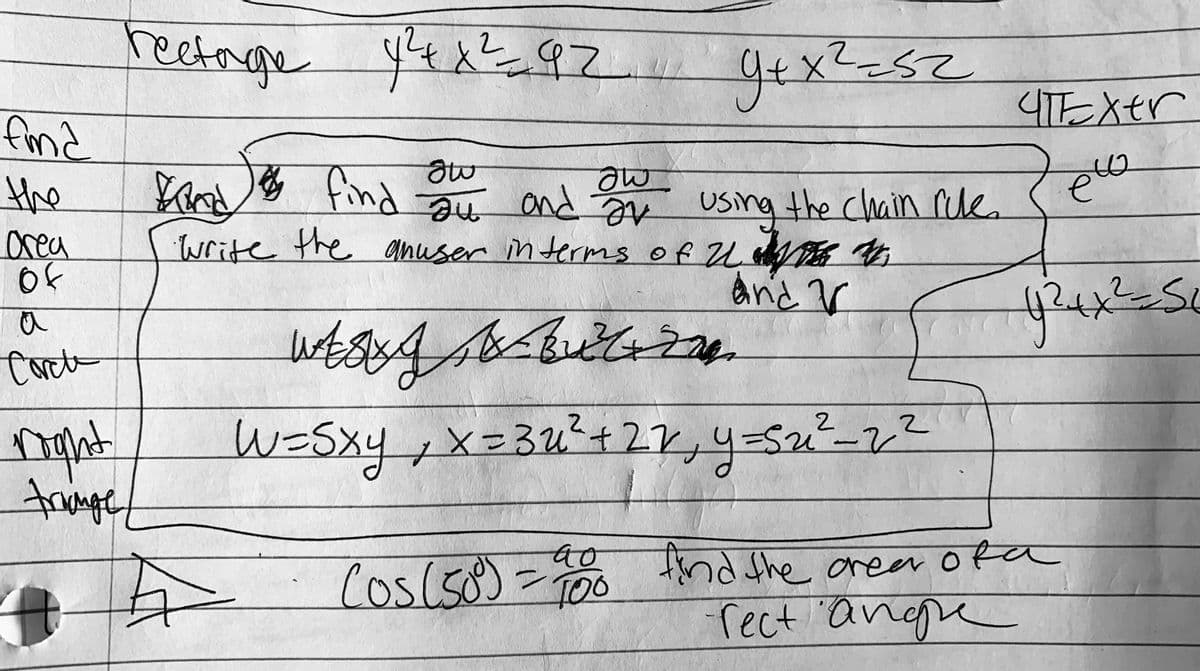 rectange y²+x²=92 y+x²=52
4π=x+r
find the area of a
right triange
find ∂w/∂u and ∂w/∂v using the chain rule.
write the anuser in terms of u
and v
e^w
y²+x²=5
w=5xy, x=3u²+2v, y=5u²-v²
cos(50°) = 90/100 find the area of a
rect angre